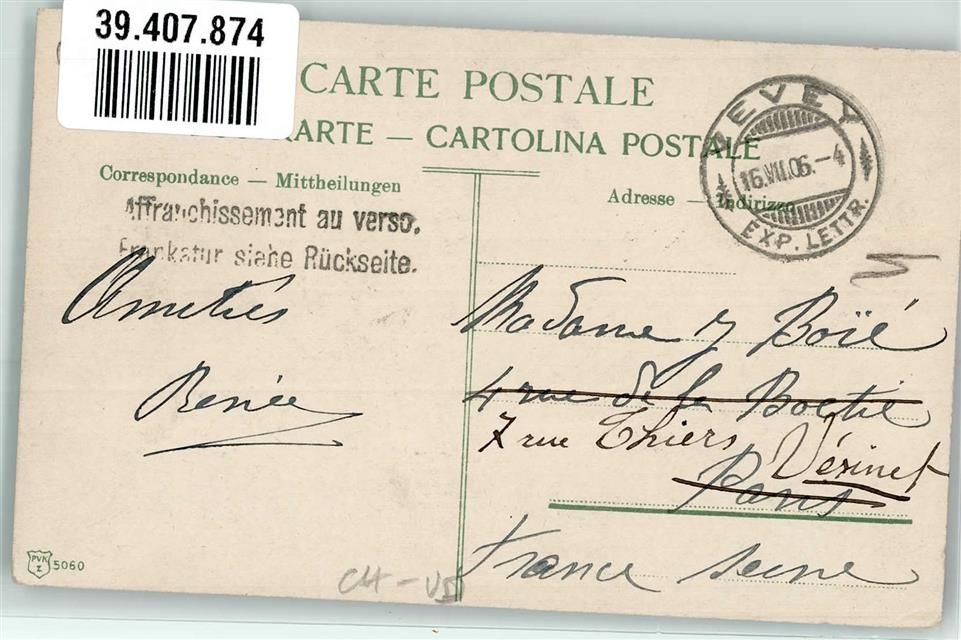 39.407.874
CARTE POSTALE
KARTE — CARTOLINA POSTALE
Correspondance — Mittheilungen
Adresse — Indirizzo
VEVEY
16.VII.06.-4
EXP. LETTR.
Affranchissement au verso.
Frankatur siehe Rückseite.
Amitiés
Renée
Madame J Boïé
4 rue de la Boëtie
7 rue Thiers Vésinet
Paris
France Seine
PVK
Z
5060
CH - VD